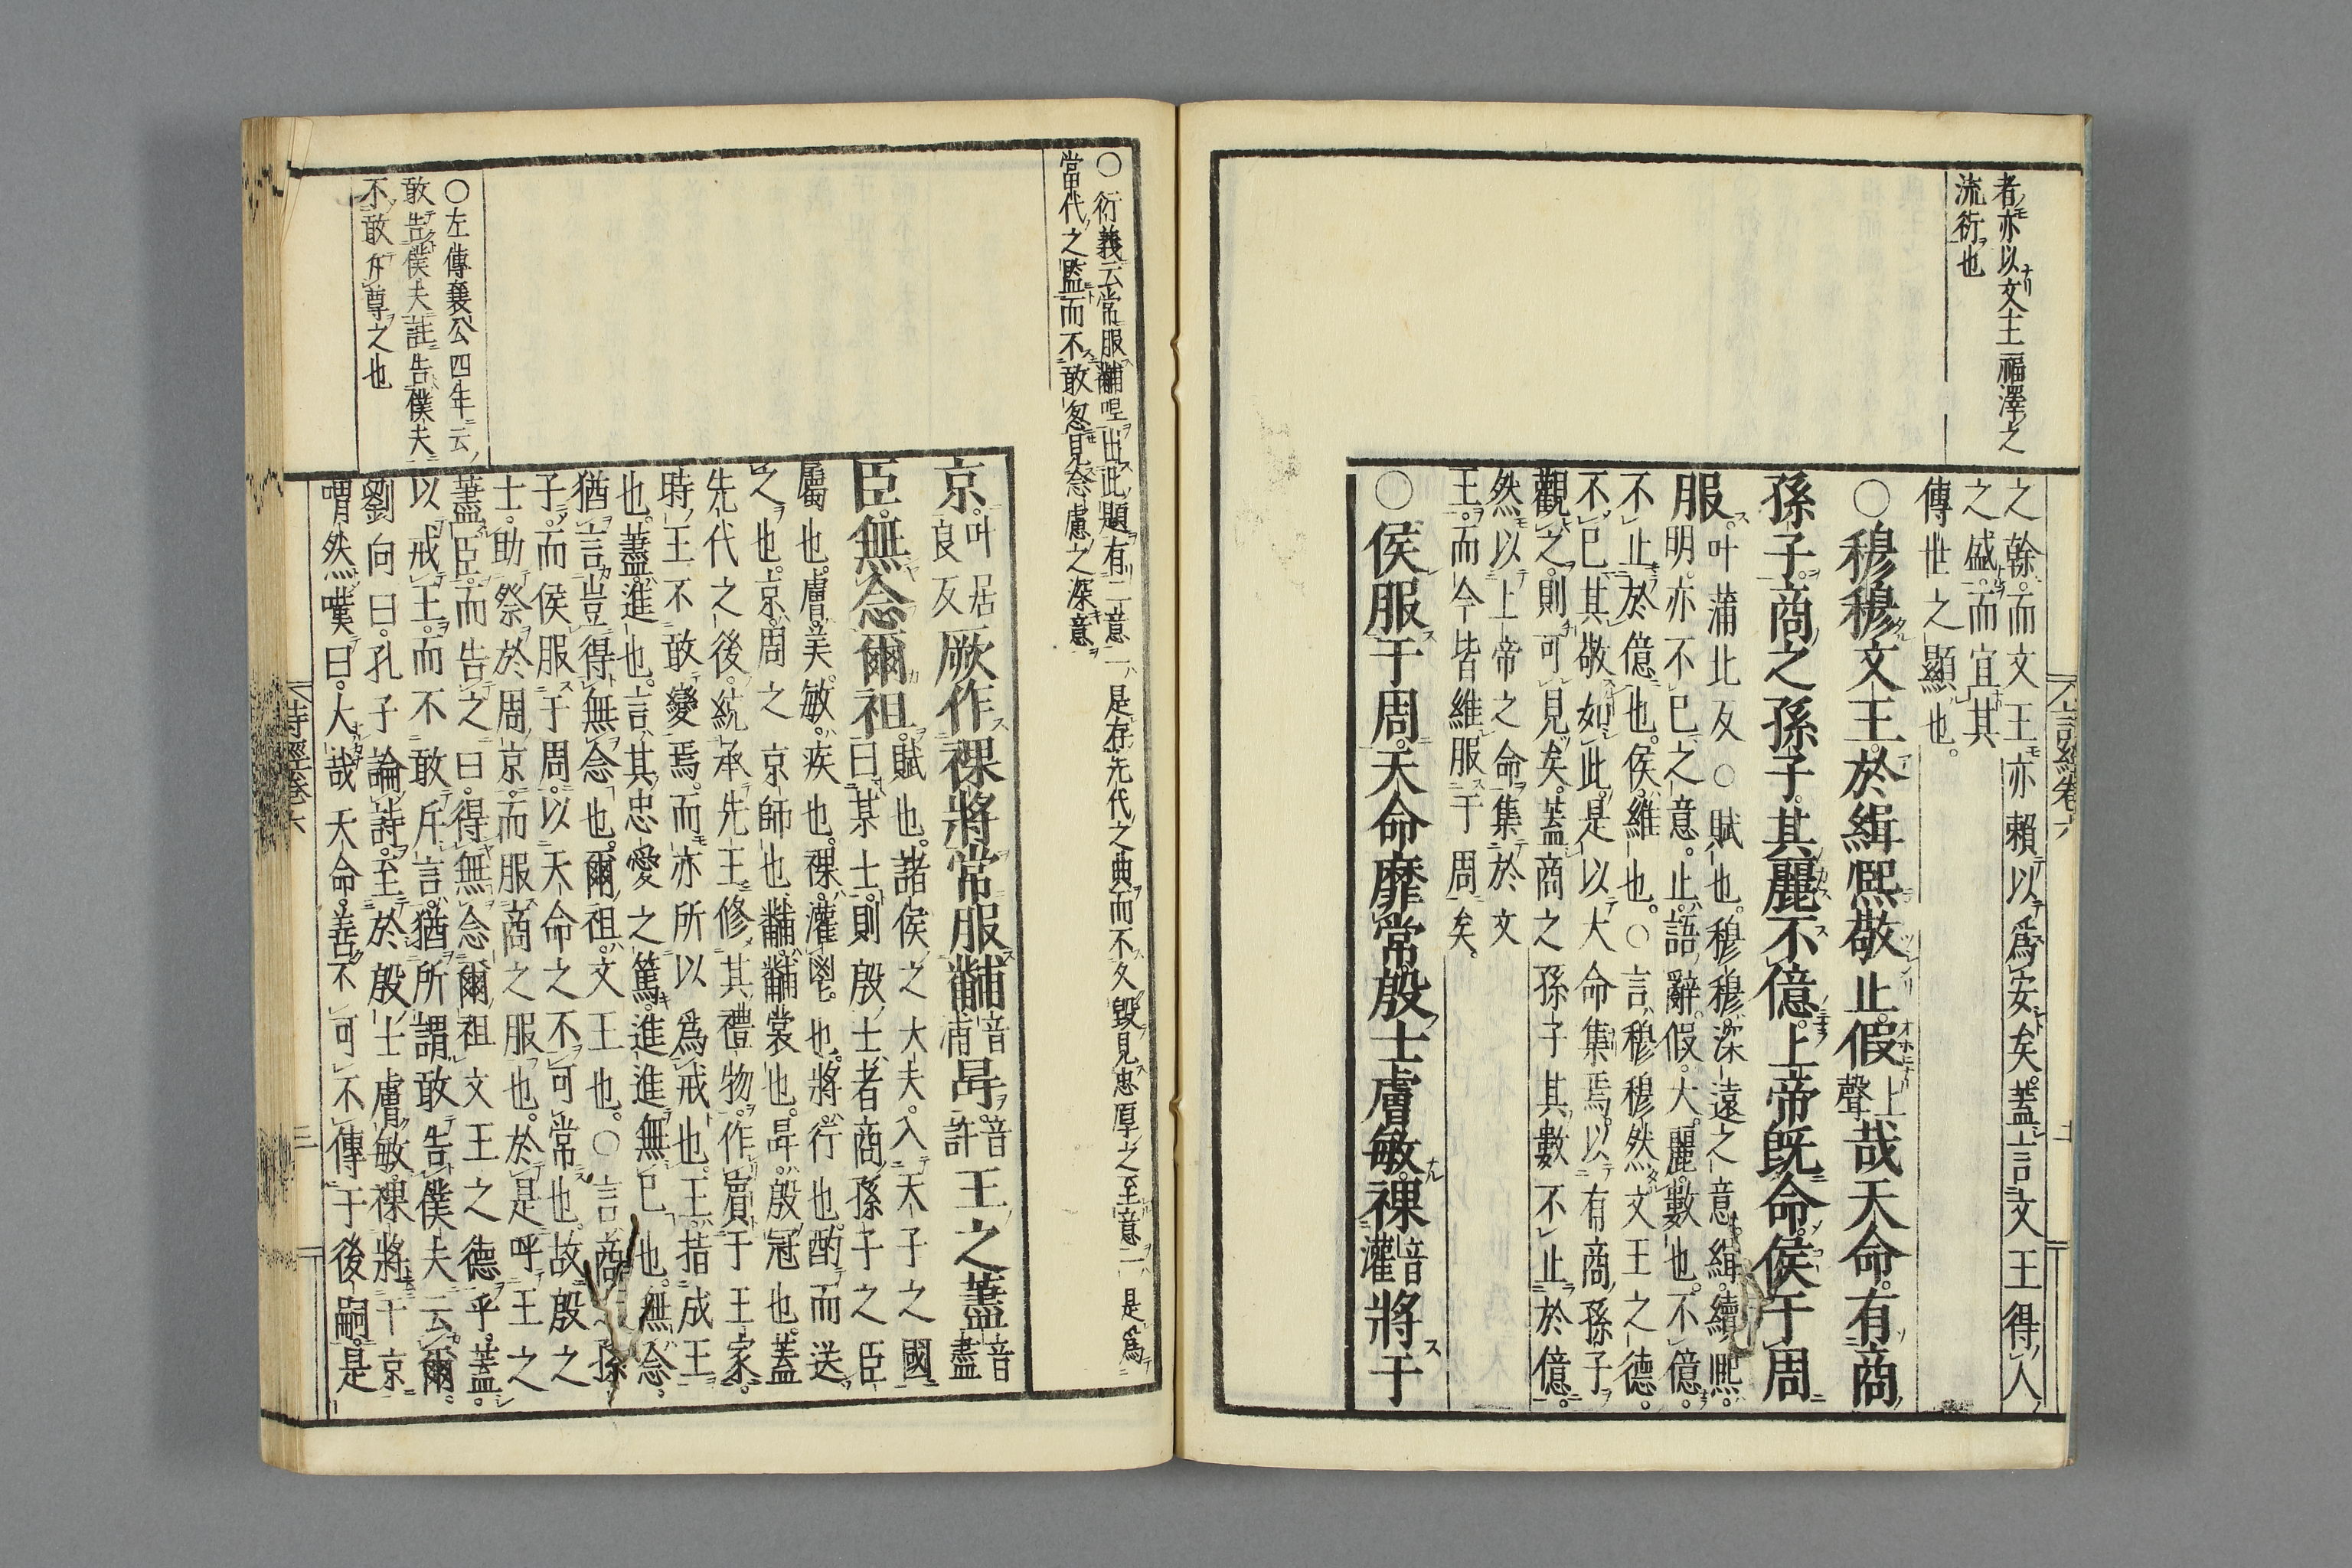 者亦以文王福澤之
流衍也
之榦而文王亦賴以爲安矣蓋言文王得人
之盛而宜其
傳世之顯也
○穆穆文王於緝熙敬止假上聲哉天命有商
孫子商之孫子其麗不億上帝既命侯于周
服叶蒲北反○賦也穆穆深遠之意緝續熙
明亦不已之意止語辭假大麗數也不億
不止於億也侯維也○言穆穆然文王之德
不已其敬如此是以大命集焉以有商孫子
觀之則可見矣蓋商之孫子其數不止於億
然以上帝之命集於文
王而今皆維服于周矣
○侯服于周天命靡常殷士膚敏祼音灌將于
詩經卷六
○衍義云常服黼冔出此題有二意一是存先代之典而不久毀見忠厚之至意二是爲
當代之監而不敢忽見念慮之深意
京叶居良反厥作祼將常服黼音甫冔音許王之藎音盡
臣無念爾祖賦也諸侯之大夫入天子之國
曰某士則殷士者商孫子之臣
屬也膚美敏疾也祼灌鬯也將行也酌而送
之也京周之京師也黼黼裳也冔殷冠也蓋
先代之後統承先王修其禮物作賓于王家
時王不敢變焉而亦所以爲戒也王指成王
也藎進也言其忠愛之篤進進無已也無念
猶言豈得無念也爾祖文王也○言商孫
子而侯服于周以天命之不可常也故殷之
士助祭於周京而服商之服也於是呼王之
藎臣而告之曰得無念爾祖文王之德乎蓋
以戒王而不敢斥言猶所謂敢告僕夫云爾
劉向曰孔子論詩至於殷士膚敏祼將于京
喟然嘆曰大哉天命善不可不傳于後嗣是
○左傳襄公四年云
敢告僕夫註告僕夫
不敢斥尊之也
詩經卷六
三